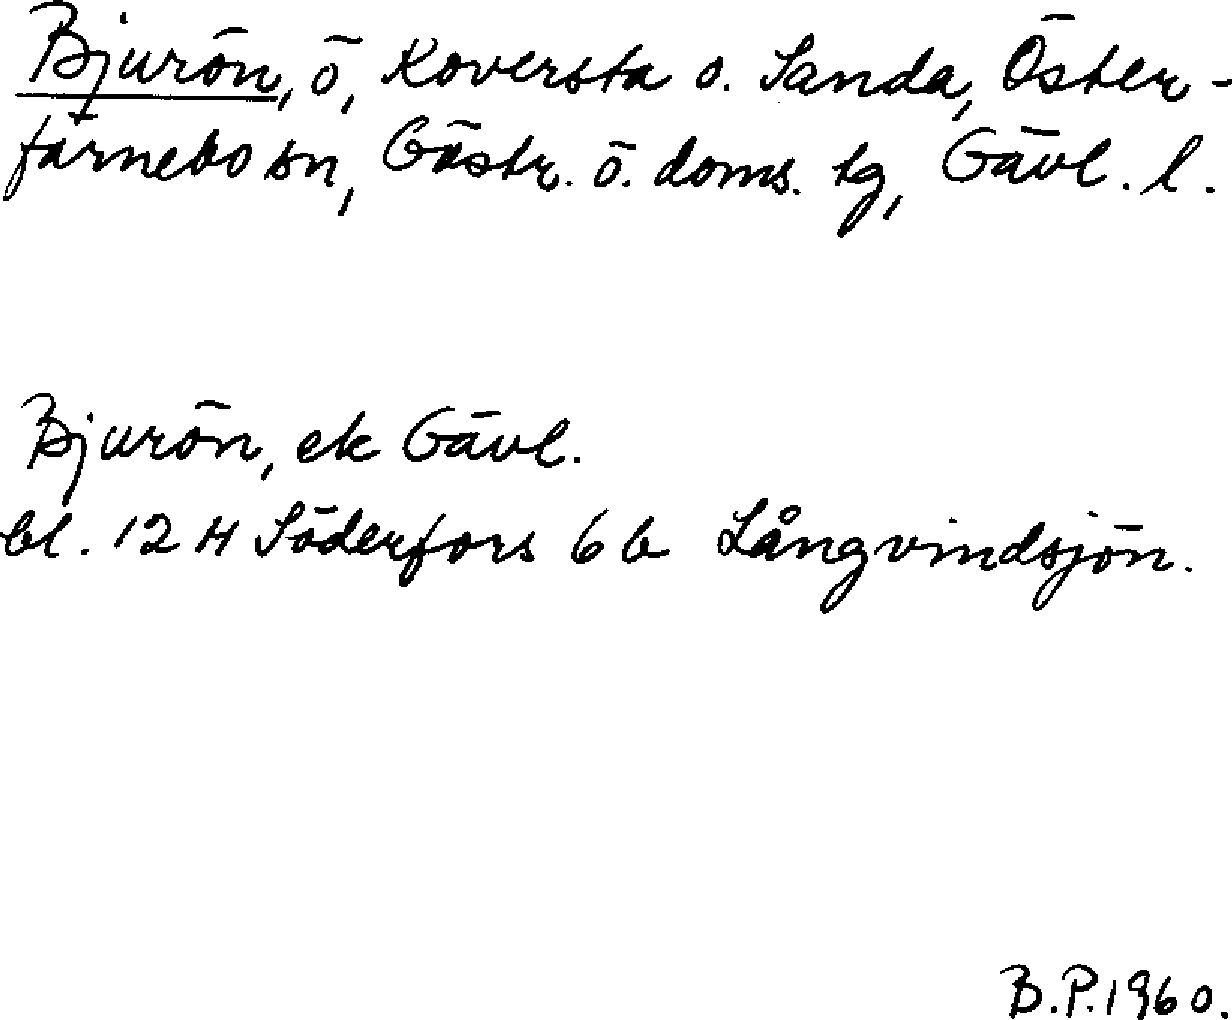 Bjurön, ö, Koversta o. Sanda, Öster-
färnebo sn, Gästr. ö. doms. tg, Gävl. l.
Bjurön, ek Gävl.
bl. 12 H Söderfors 6 b Långvindsjön.
B.P. 1960.